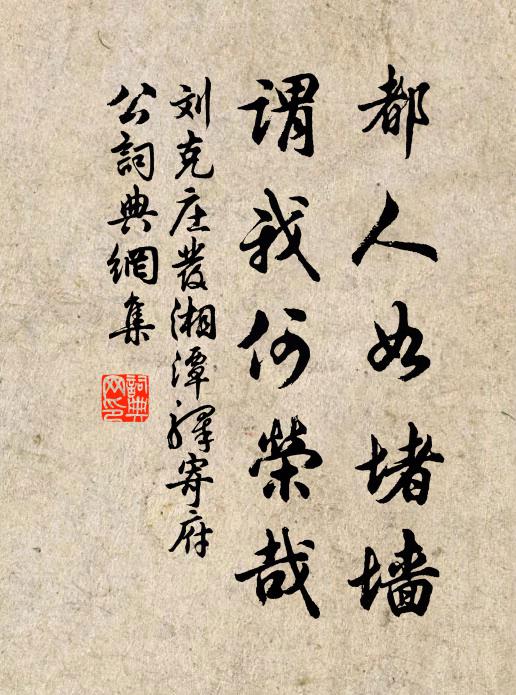 都人如堵墙
谓我何荣哉
刘克庄发湘潭驿寄府
公词典网集
词典
网印